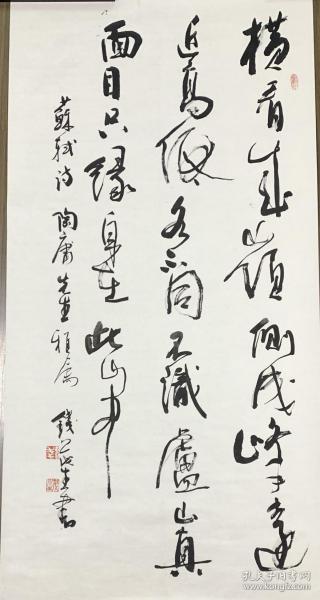 横看成嶺側成峰遠
近高低各不同不識廬山真
面目只緣身在此山中
蘇軾诗 陶庸先生雅屬 錢 書
孔夫子旧书网